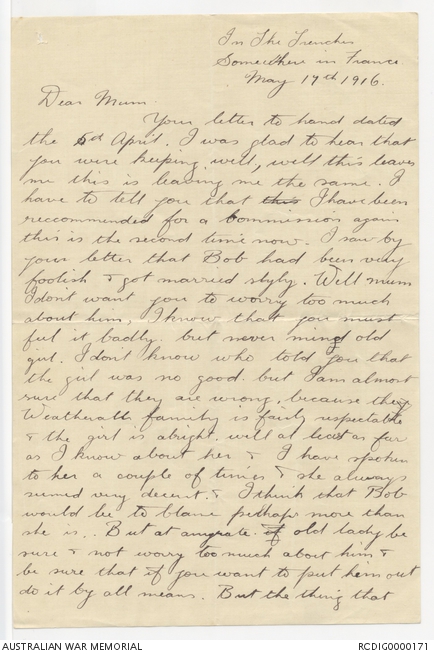 In The Trenches
Somewhere in France
May 19th 1916.
Dear Mum.
Your letter to hand dated
the 5th April. I was glad to hear that
you were keeping well, well this leaves
me this is leaving me the same. I
have to tell you that this I have been
reccommended for a commission again
this is the second time now. I saw by
your letter that Bob had been very
foolish & got married slyly. Well mum
I dont want you to worry too much
about him, I know that you must
ful it badly. but never mind old
girl. I dont know who told you that
the girl was no good. but I am almost
sure that they are wrong, because the
Weatherall family is fairly respectable
& the girl is alright. well at least as far
as I know about her & I have spoken
to her a couple of times & she always
seemed very decent. & I think that Bob
would be to blame perhaps more than
she is.. But at anyrate. if old lady be
sure & not worry too much about him &
be sure that if you want to put him out
do it by all means. But the thing that
AUSTRALIAN WAR MEMORIAL
RCDIG0000171